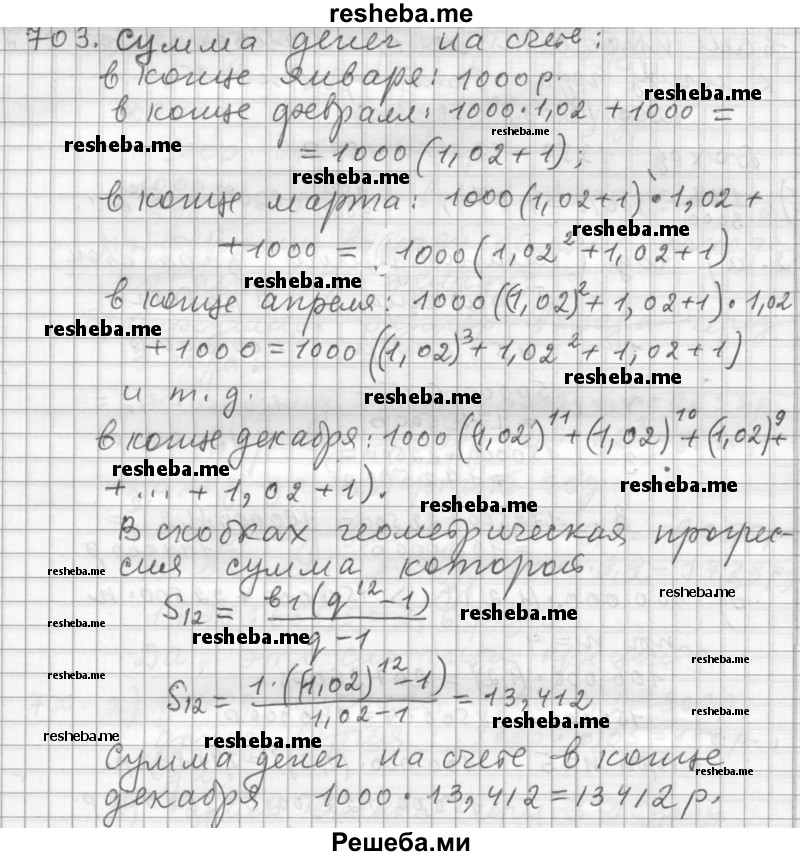 resheba.me
703. Сумма денег на счёте:
в конце января: 1000 р.
resheba.me
в конце февраля: 1000·1,02 + 1000 =
resheba.me
resheba.me
= 1000 (1,02+1);
resheba.me
в конце марта: 1000 (1,02+1)·1,02 +
resheba.me
+1000 = 1000 (1,02² + 1,02+1)
resheba.me
в конце апреля: 1000 ((1,02)² + 1,02+1)·1,02
resheba.me
+1000 = 1000 ((1,02)³ + 1,02² + 1,02+1)
resheba.me
и т.д.
resheba.me
в конце декабря: 1000 ((1,02)¹¹ + (1,02)¹⁰ + (1,02)⁹ +
resheba.me
+ ... + 1,02 + 1).
resheba.me
resheba.me
В скобках геометрическая прогрес-
сия сумма которой
resheba.me
resheba.me
S₁₂ = в1 (q¹² - 1) / q - 1
resheba.me
resheba.me
resheba.me
resheba.me
resheba.me
S₁₂ = 1·((1,02)¹² - 1) / 1,02 - 1 = 13,412
resheba.me
resheba.me
resheba.me
resheba.me
Сумма денег на счете в конце
resheba.me
декабря 1000·13,412 = 13412 р.
Решеба.ми